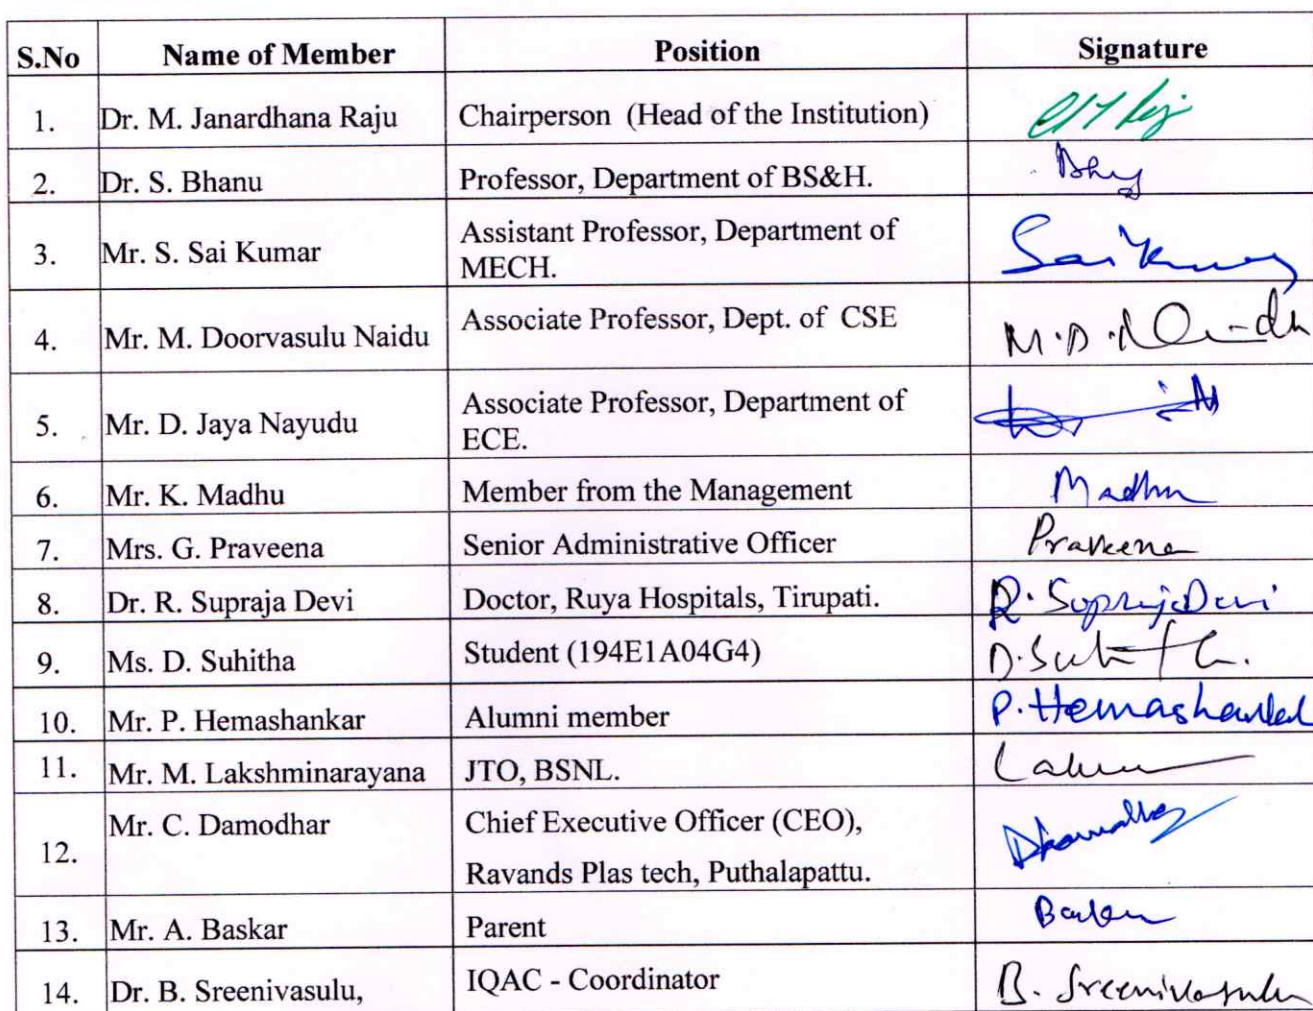 S.No Name of Member Position Signature
1. Dr. M. Janardhana Raju Chairperson (Head of the Institution)
2. Dr. S. Bhanu Professor, Department of BS&H.
3. Mr. S. Sai Kumar Assistant Professor, Department of
MECH. Sai Kumar
4. Mr. M. Doorvasulu Naidu Associate Professor, Dept. of CSE M.D.
5. Mr. D. Jaya Nayudu Associate Professor, Department of
ECE.
6. Mr. K. Madhu Member from the Management Madhu
7. Mrs. G. Praveena Senior Administrative Officer Praveena
8. Dr. R. Supraja Devi Doctor, Ruya Hospitals, Tirupati. R. Supraja Devi
9. Ms. D. Suhitha Student (194E1A04G4) D. Suhitha
10. Mr. P. Hemashankar Alumni member P. Hemashankar
11. Mr. M. Lakshminarayana JTO, BSNL.
12. Mr. C. Damodhar Chief Executive Officer (CEO),
Ravands Plas tech, Puthalapattu.
13. Mr. A. Baskar Parent
14. Dr. B. Sreenivasulu, IQAC - Coordinator B. Sreenivasulu